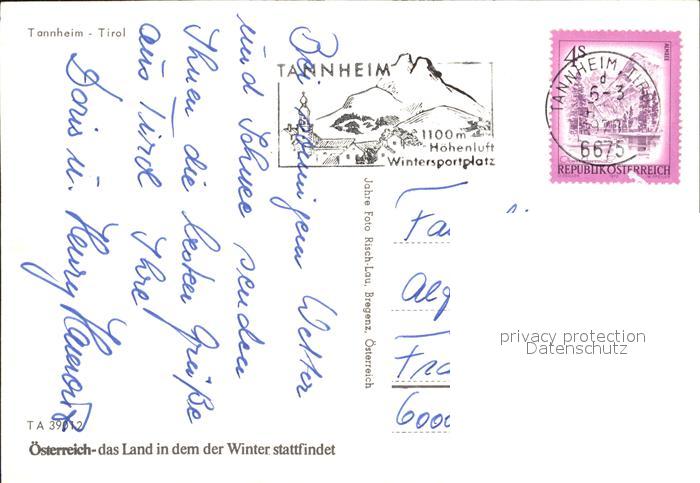 Tannheim - Tirol
Bei sonnigem Wetter
und Schnee senden
Ihnen die besten Grüße
aus Tirol Ihre
Doris u. Henry
TANNHEIM
1100 m
Höhenluft
Wintersportplatz
4S
ALMSEE
REPUBLIK ÖSTERREICH
TANNHEIM, TIROL
d
6-3
6675
Jahre Foto Risch-Lau, Bregenz, Österreich
Fa
Alg
Fra
6000
privacy protection
Datenschutz
TA 39012
Österreich-das Land in dem der Winter stattfindet